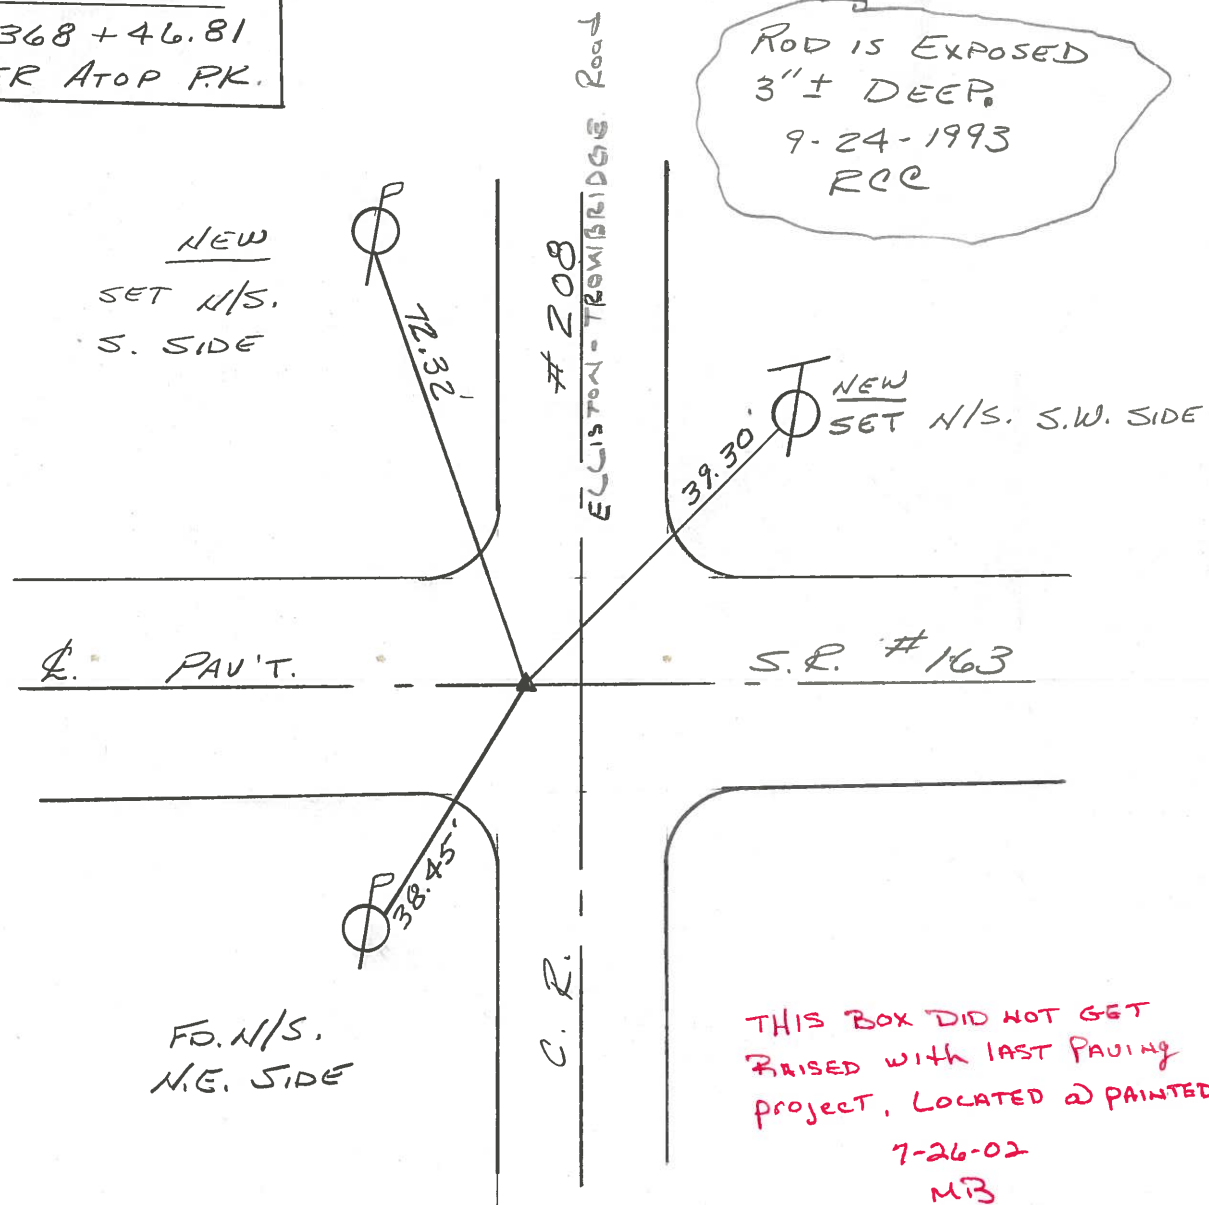 368 + 46.81
ATOP P.K.
ROD IS EXPOSED
3"± DEEP.
9-24-1993
RCC
NEW
SET N/S.
S. SIDE
72.32'
# 208
ELLISTON-TROWBRIDGE Road
NEW
SET N/S. S.W. SIDE
39.30'
℄. PAV'T.
S.R. #163
38.45'
FD. N/S.
N.E. SIDE
C. R.
THIS BOX DID NOT GET
RAISED with lAST PAVING
project, LOCATED @ PAINTED
7-26-02
MB